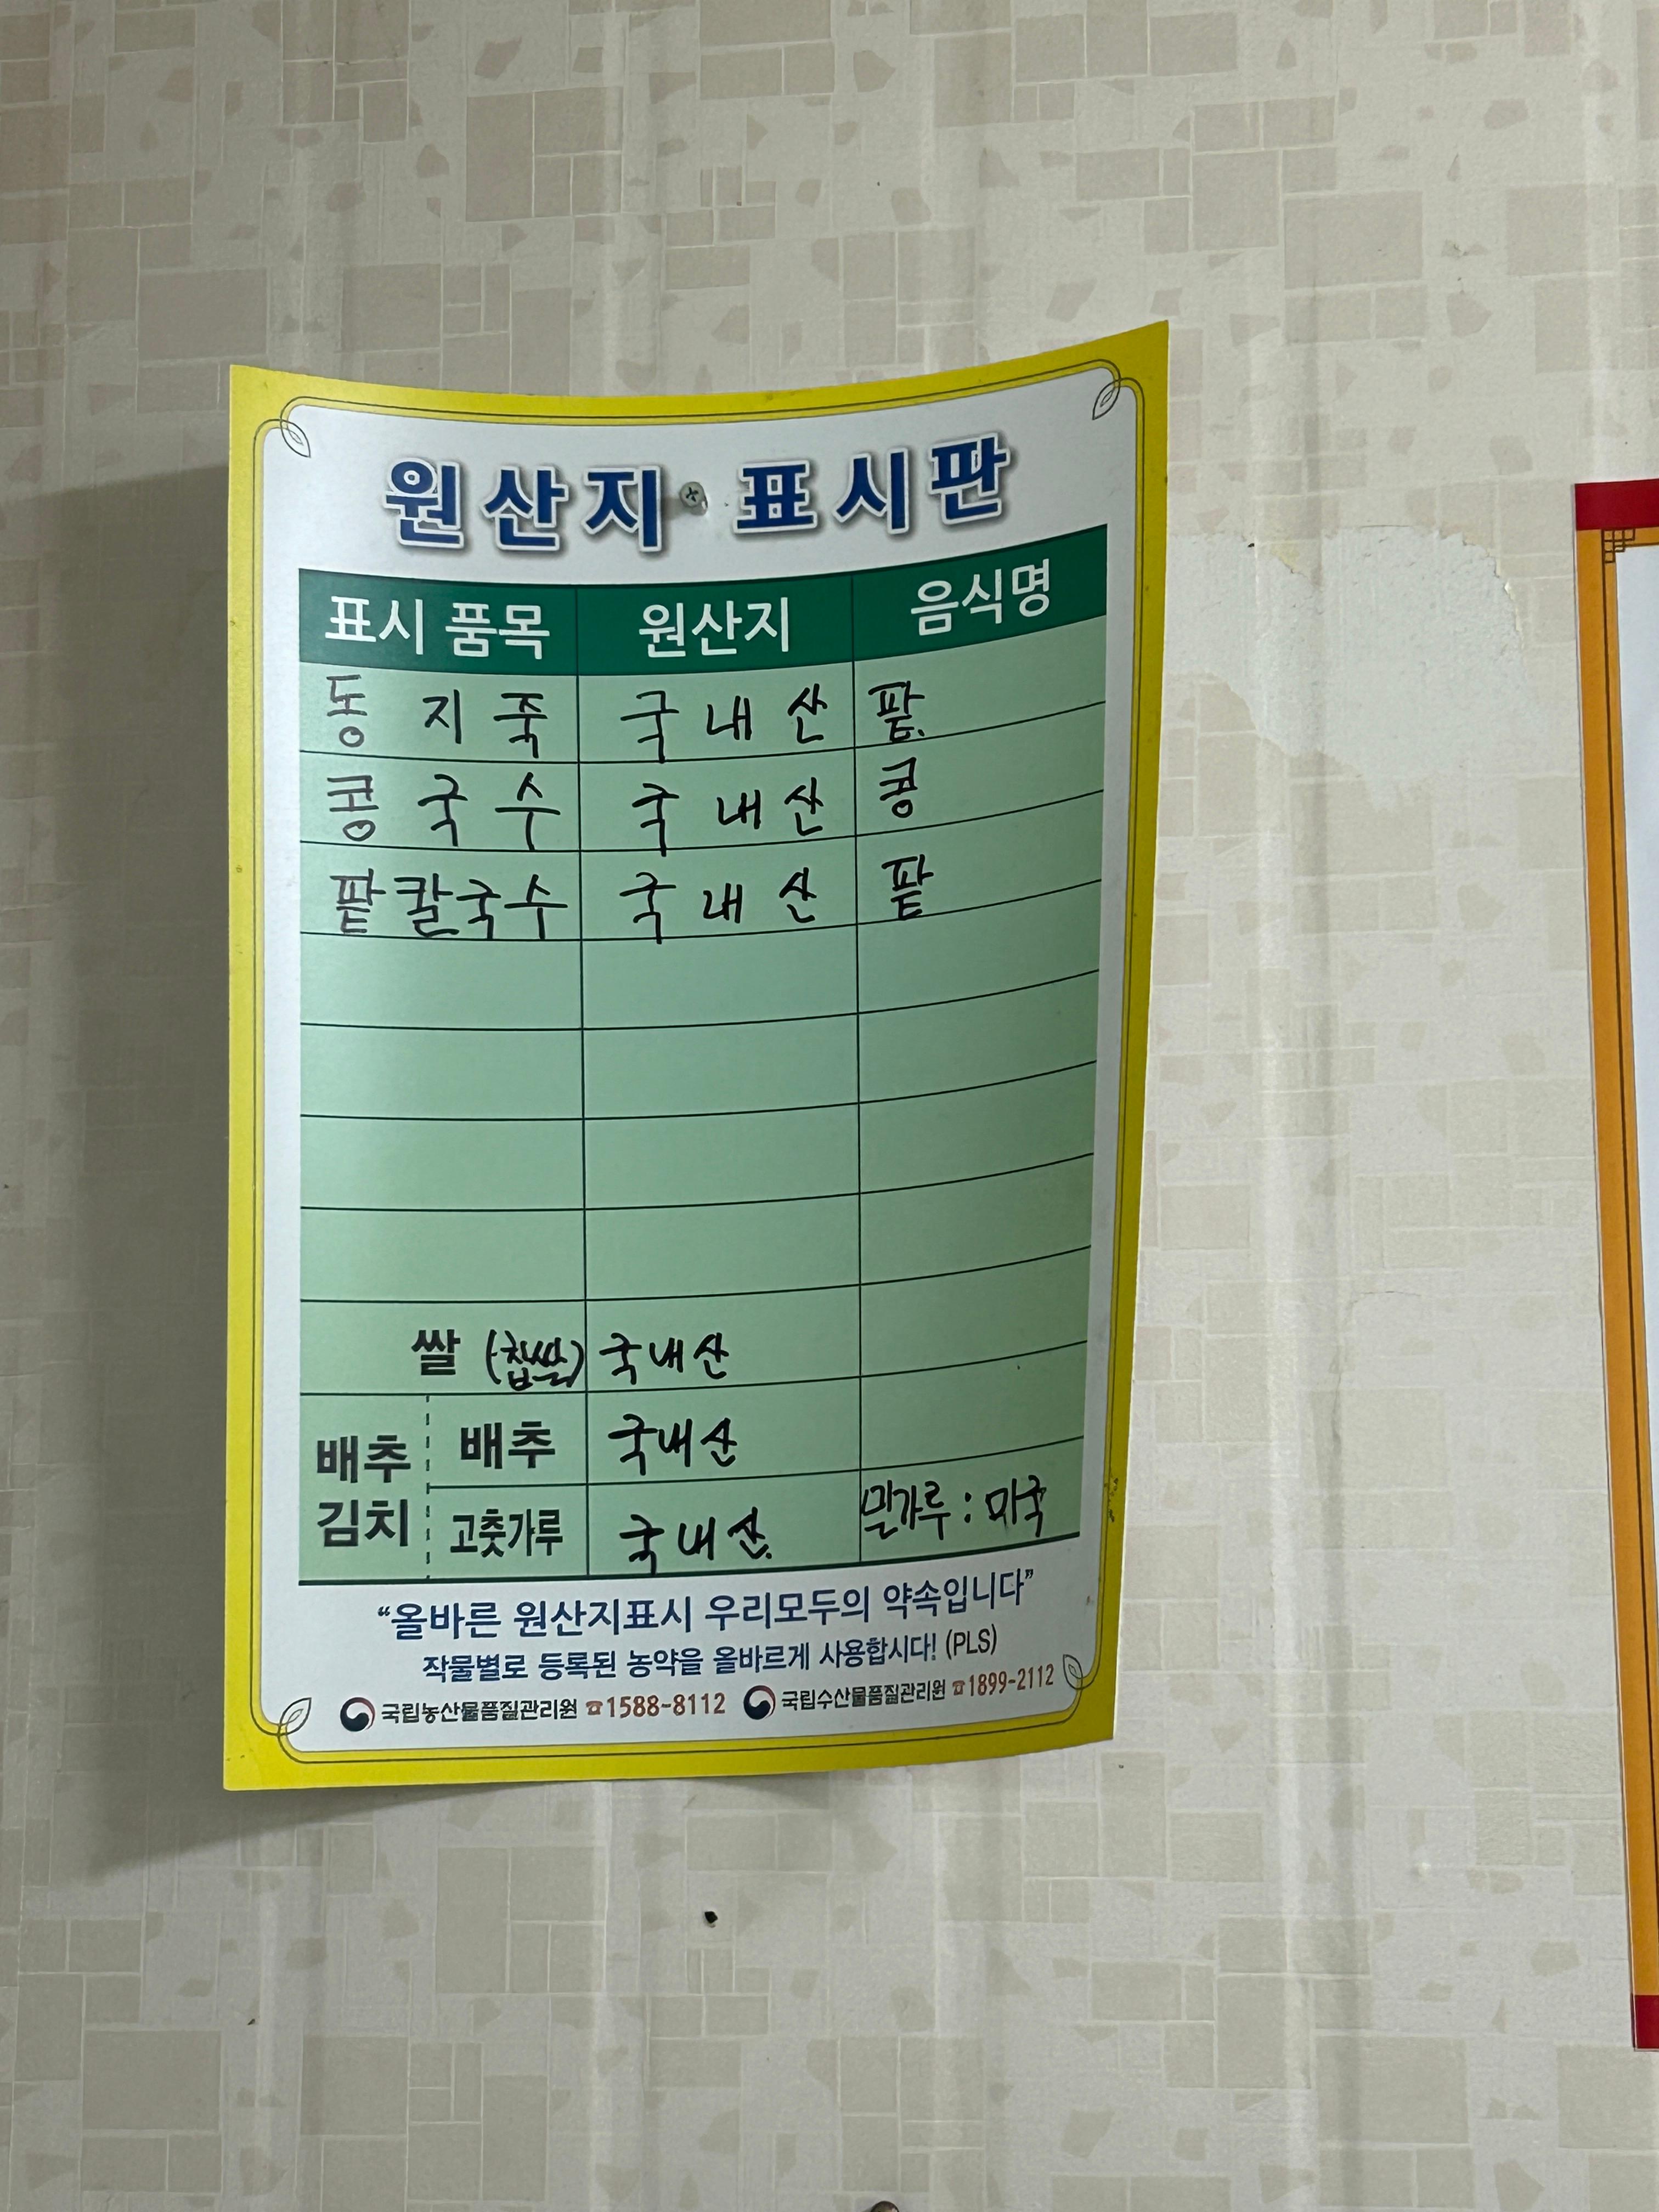 원산지 표시판
표시 품목 원산지 음식명
동지죽 국내산 팥.
콩국수 국내산 콩
팥칼국수 국내산 팥
쌀 (찹쌀) 국내산
배추김치 배추 국내산
고춧가루 국내산. 밀가루 : 미국
“올바른 원산지표시 우리모두의 약속입니다”
작물별로 등록된 농약을 올바르게 사용합시다! (PLS)
국립농산물품질관리원 ☎1588-8112 국립수산물품질관리원 ☎1899-2112